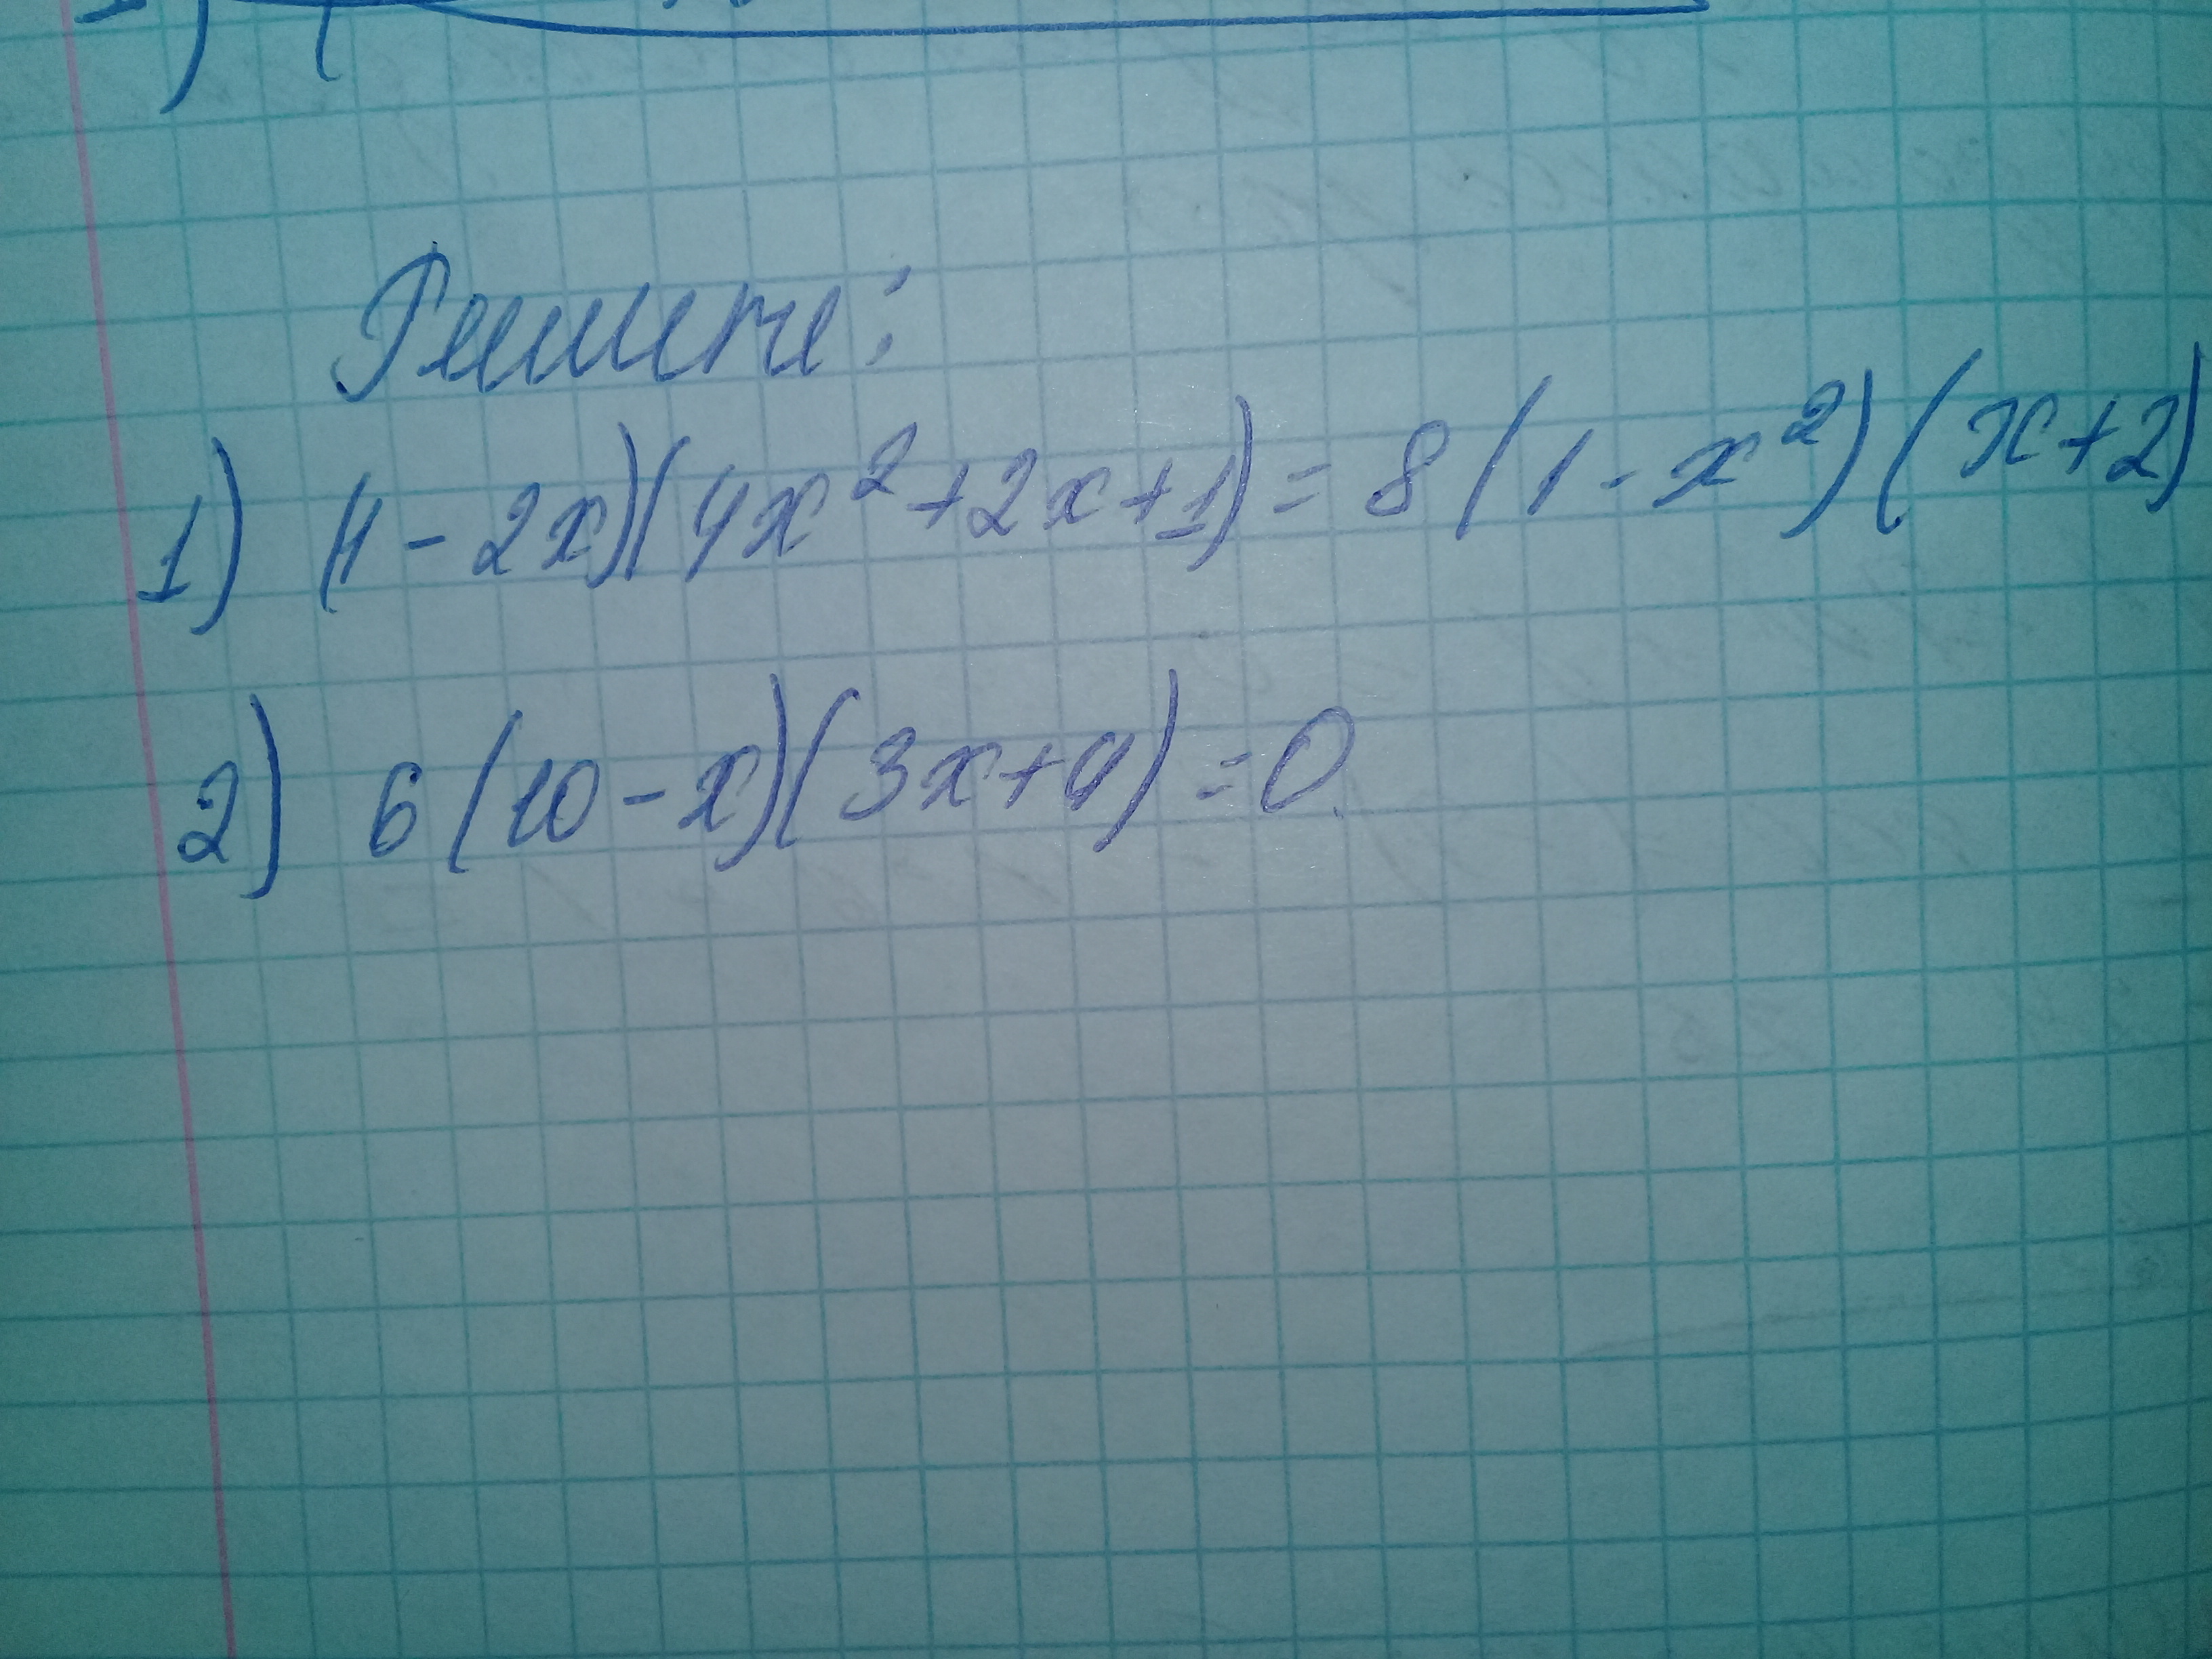 Решите:
1) (1-2x)(4x²+2x+1)=8(1-x²)(x+2)
2) 6(10-x)(3x+4)=0.